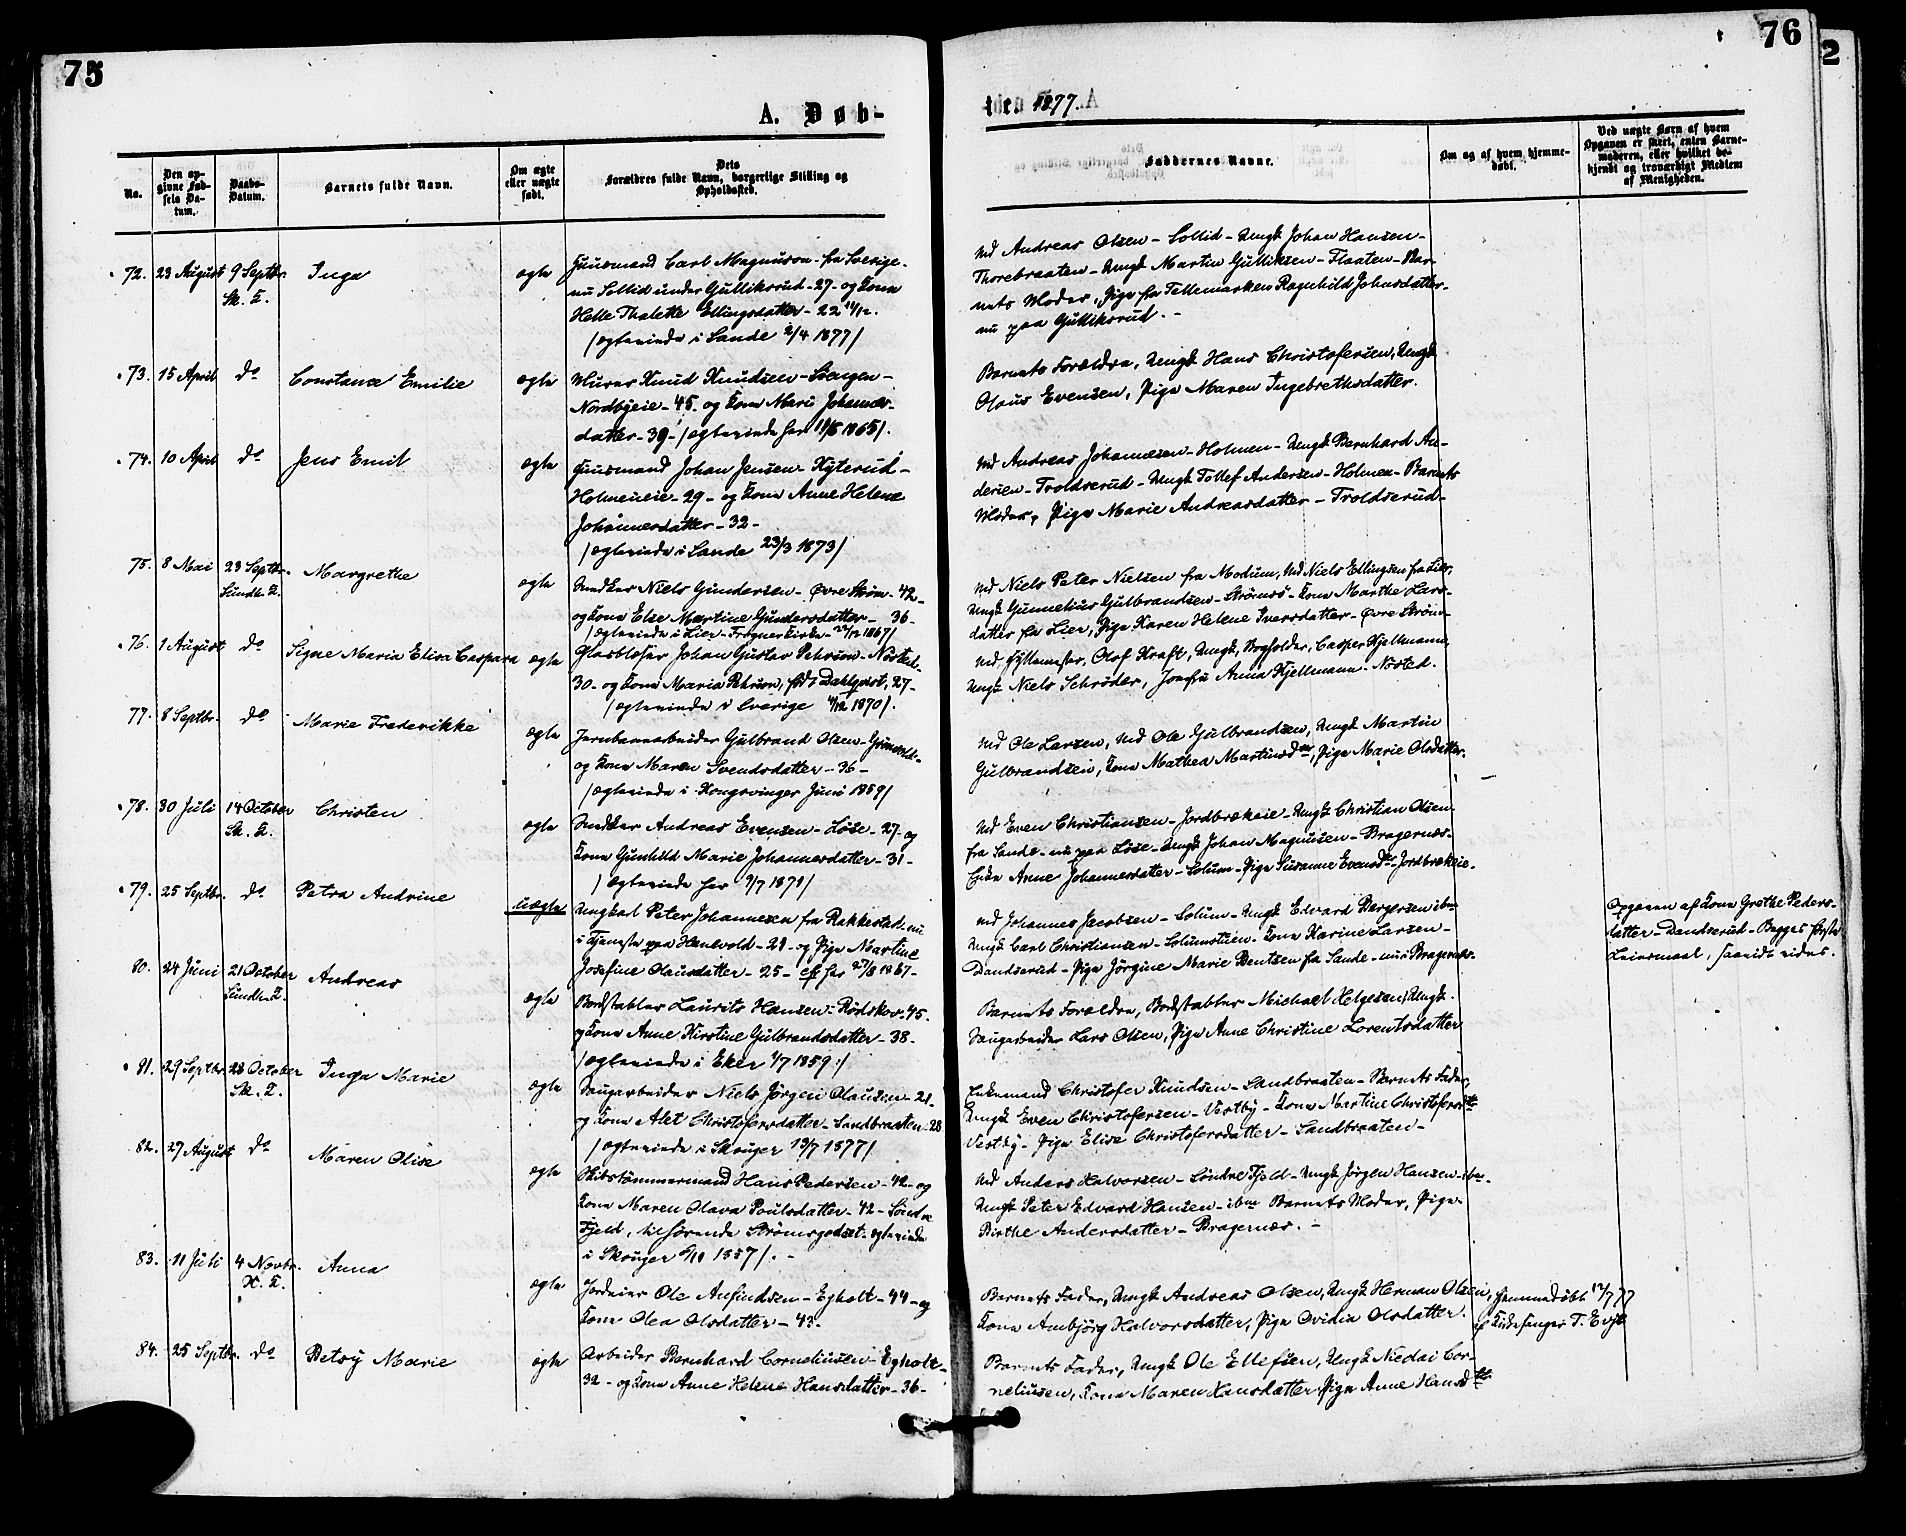 75
A. Døb-
No.
Den op-
givne Fød-
sels Da-
tum.
Daabs-
Datum.
Barnets fulde Navn.
Om ægte
eller uægte
født.
Dets
Forældres fulde Navn, borgerlige Stilling og
Opholdssted.
72. 23 August 9 Septbr. Sk. K. Inga ægte
Huusmand Carl Magnuson fra Sverige-
nu Sollid under Gulliksrud - 27 - og Kone
Helle Thalette Ellingsdatter - 22
/ægteviede i Sande 2/4 1877/
73. 15 April do Constance Emilie ægte
Murer Knud Knudsen -
Nordbyeie - 45. og Kone Mari Johannes-
datter - 39 - /ægteviede her 1865/.
74. 10 April do Jens Emil ægte
Huusmand Johan Jensen - Hyterud -
Holmeneie - 29 - og Kone Anne Helene
Johannesdatter - 32 -
/ægteviede i Sande 23/3 1873/
75. 8 Mai 23 Septbr. Margrethe ægte
Niels Gundersen - Øvre Strøm - 42 -
og Kone Else Martine Gundersdatter - 36 -
/ægteviede i Lier - Frogner Kirke - 1867/
76. 1 August do Signe Maria Elisa Caspara ægte
Glasblæser Johan Gustav Pehrson - Nøsted -
30 - og Kone Maria Pehrson, født Dahlqvist, 27 -
/ægteviede i Sverige 1870/.
77. 8 Septbr. do Marie Frederikke ægte
Jernbanearbeider Gulbrand Olsen -
og Kone Maren Svendsdatter - 36 -
/ægteviede i Kongsvinger Juni 1859/
78. 30 Juli 14 October Sk. K. Christen ægte
Andreas Evensen - Løse - 27 - og
Kone Gunhild Marie Johannesdatter - 31 -
/ægteviede her 1871/
79. 25 Septbr. do Petra Andrine uægte
Ungkarl Peter Johannesen fra Rakkestad - nu
i Tjeneste paa Hanevold - 21 - og Pige Martine
Josefine Olausdatter - 25 -
80. 24 Juni 21 October Andreas ægte
Bordstabler Laurits Hansen - Rødskov - 45.
og Kone Anne Kirstine Gulbrandsdatter - 38 -
/ægteviede i Eker 1/7 1859/
81. 29 Septbr. 28 October Sk. K. Inga Marie ægte
Saugarbeider Niels Jørgen Olausen - 21 -
og Kone Alet Christofersdatter - Sandbraaten - 28
/ægteviede i Skouger 13/7 1877/
82. 27 August do Maren Olise ægte
Skibstømmermand Hans Pedersen - 42 - og
Kone Maren Olava Poulsdatter - 42 - Søndre
Fjeld, tilhørende Strømsgodset - ægteviede
i Skouger 1857/. -
83. 11 Juli 4 Novbr. Anna ægte
Jordeier Ole Anfindsen - Egholt - 44 - og
Kone Olea Olsdatter - 43 -
84. 25 Septbr. do Betsy Marie ægte
Arbeider Bernhard Corneliusen - Egholt -
32 - og Kone Anne Helene Hansdatter - 36 -
76
2
ben 1877.
Faddernes Navne.
Om og af hvem hjemme-
døbt.
Ved uægte Børn af hvem
Opgaven er skeet, enten Barne-
moderen, eller hvilket be-
kjendt og troværdigt Medlem
af Menigheden.
Md Andreas Olsen - Sollid - Ungk Johan Hansen -
Thorebraaten - Ungk Martin Gulliksen - Flaaten - Bar-
nets Moder, Pige fra Tellemarken Ragnhild Johnsdatter -
nu paa Gulliksrud. -
Barnets Forældre, Ungk Hans Christofersen, Ungk
Olaus Evensen, Pige Maren Ingebrethsdatter.
Md Andreas Johannesen - Holmen - Ungk Bernhard An-
dersen - Troldserud - Ungk Tollef Andersen - Holmen - Barnets
Moder, Pige Marie Andreasdatter - Troldserud -
Md Niels Peter Nielsen fra Modum, Md Niels Ellingsen fra Lier,
Ungk Gunnelius Gulbrandsen - Strømsø - Kone Marthe Lars-
datter fra Lier, Pige Karen Helene Iversdatter - Øvre Strøm
Md Hyttemester Olof Kraft, Ungk, Bogholder, Casper Kjellmann,
Ungk Niels Schrøder, Jomfru Anna Kjellmann - Nøsted.
Md Ole Larsen, Md Ole Gulbrandsen, Ungk Martin
Gulbrandsen, Kone Mathea Martinsdr, Pige Marie Olsdatter.
Md Even Christiansen - Jordbrækeie - Ungk Christian Olsen
fra Sande - nu paa Løse - Ungk Johan Magnusen - Bragernæs -
Anne Johannesdatter - Solum - Pige Susanne Evensdtr - Jordbrækeie -
Md Johannes Jacobsen - Solum - Ungk Edvard Børgersen ibm
Ungk Carl Christiansen - Solumstuen - Kone Karine Larsen -
Dandserud - Pige Jørgine Marie Bentsen fra Sande - nu i Bragernæs.
Opgaven af Kone Grethe Peders-
datter - Dandserud - Begges første
Leiermaal, saavidt vides.
Barnets Forældre, Bordstabler Michael Helgesen, Ungk.
Saugarbeider Lars Olsen, Pige Anne Christine Lorentsdatter
Enkemand Christofer Knudsen - Sandbraaten - Barnets Fader,
Ungk Even Christofersen - Vestby - Kone Martine Christofersdtr
Vestby - Pige Elise Christofersdatter - Sandbraaten -
Md Anders Halvorsen - Søndre Fjeld - Ungk Jørgen Hansen - ibm.
Ungk Peter Edvard Hansen - ibm Barnets Moder, Pige
Birthe Andersdatter - Bragernæs. -
Barnets Fader, Ungk Andreas Olsen, Ungk Herman Olsen,
Kone Ambjørg Halvorsdatter, Pige Ovidia Olsdatter.
Hjemmedøbt 12/7 77
af Kirkesanger T. Evje
Barnets Fader, Ungk Ole Ellefsen, Ungk Nicolai Cor-
neliusen, Kone Maren Hansdatter, Pige Anne Hansdtr